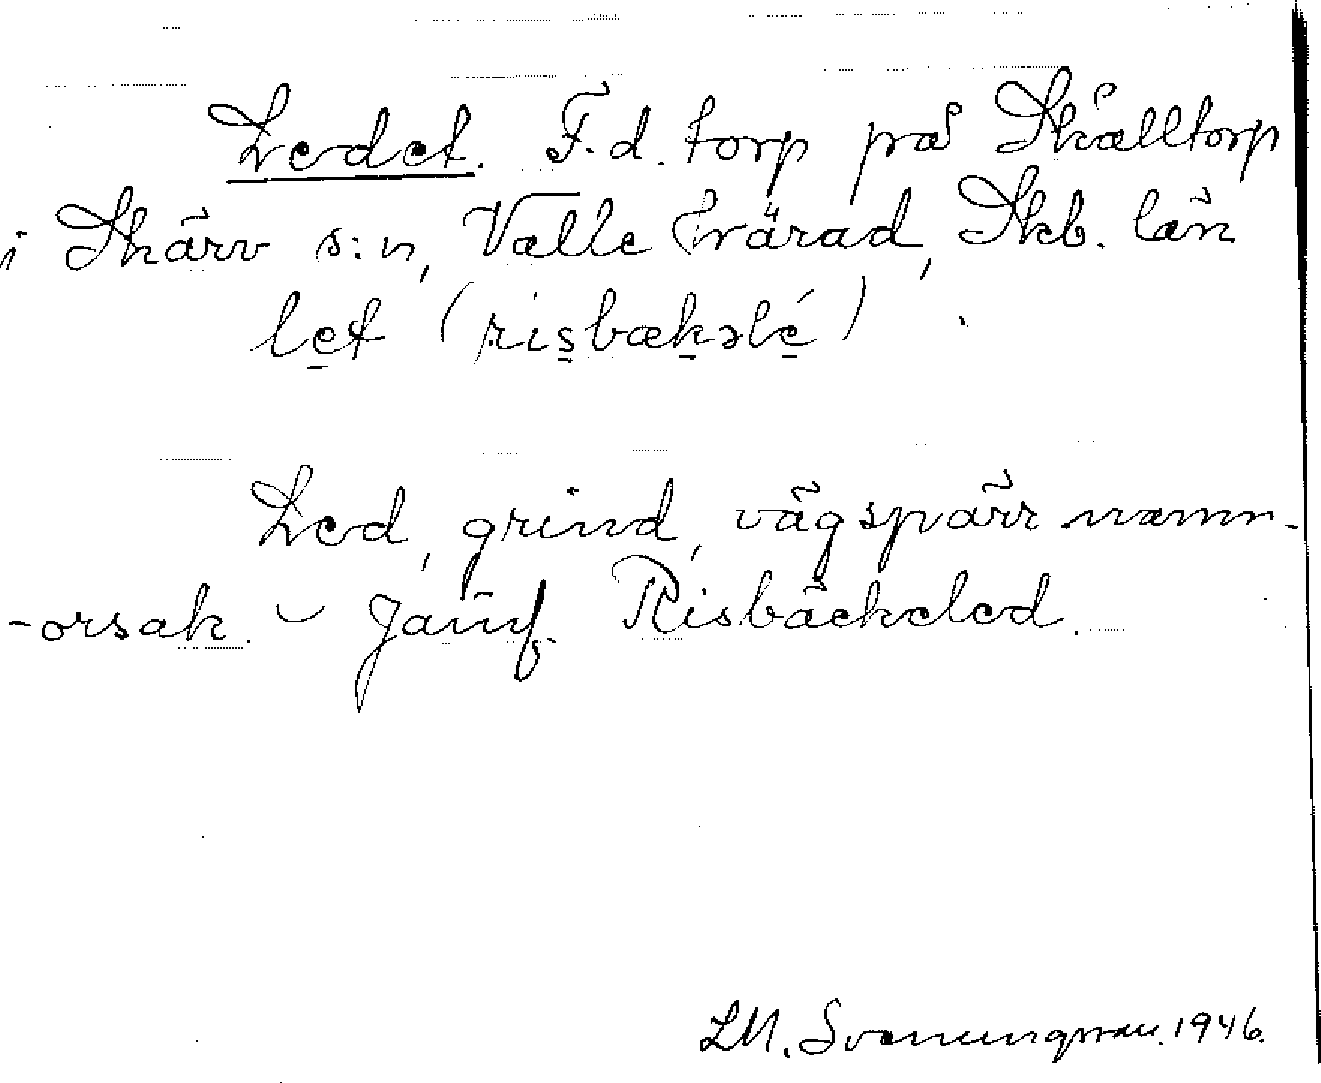 Ledet. F.d. torp på Skålltorp
i Skärv s:n, Valle härad, Skb. län
let (risbækslé)
Led, grind, vägspärr namn-
-orsak. – Jämf. Risbäckeled.
LM. Svenungsson. 1946.